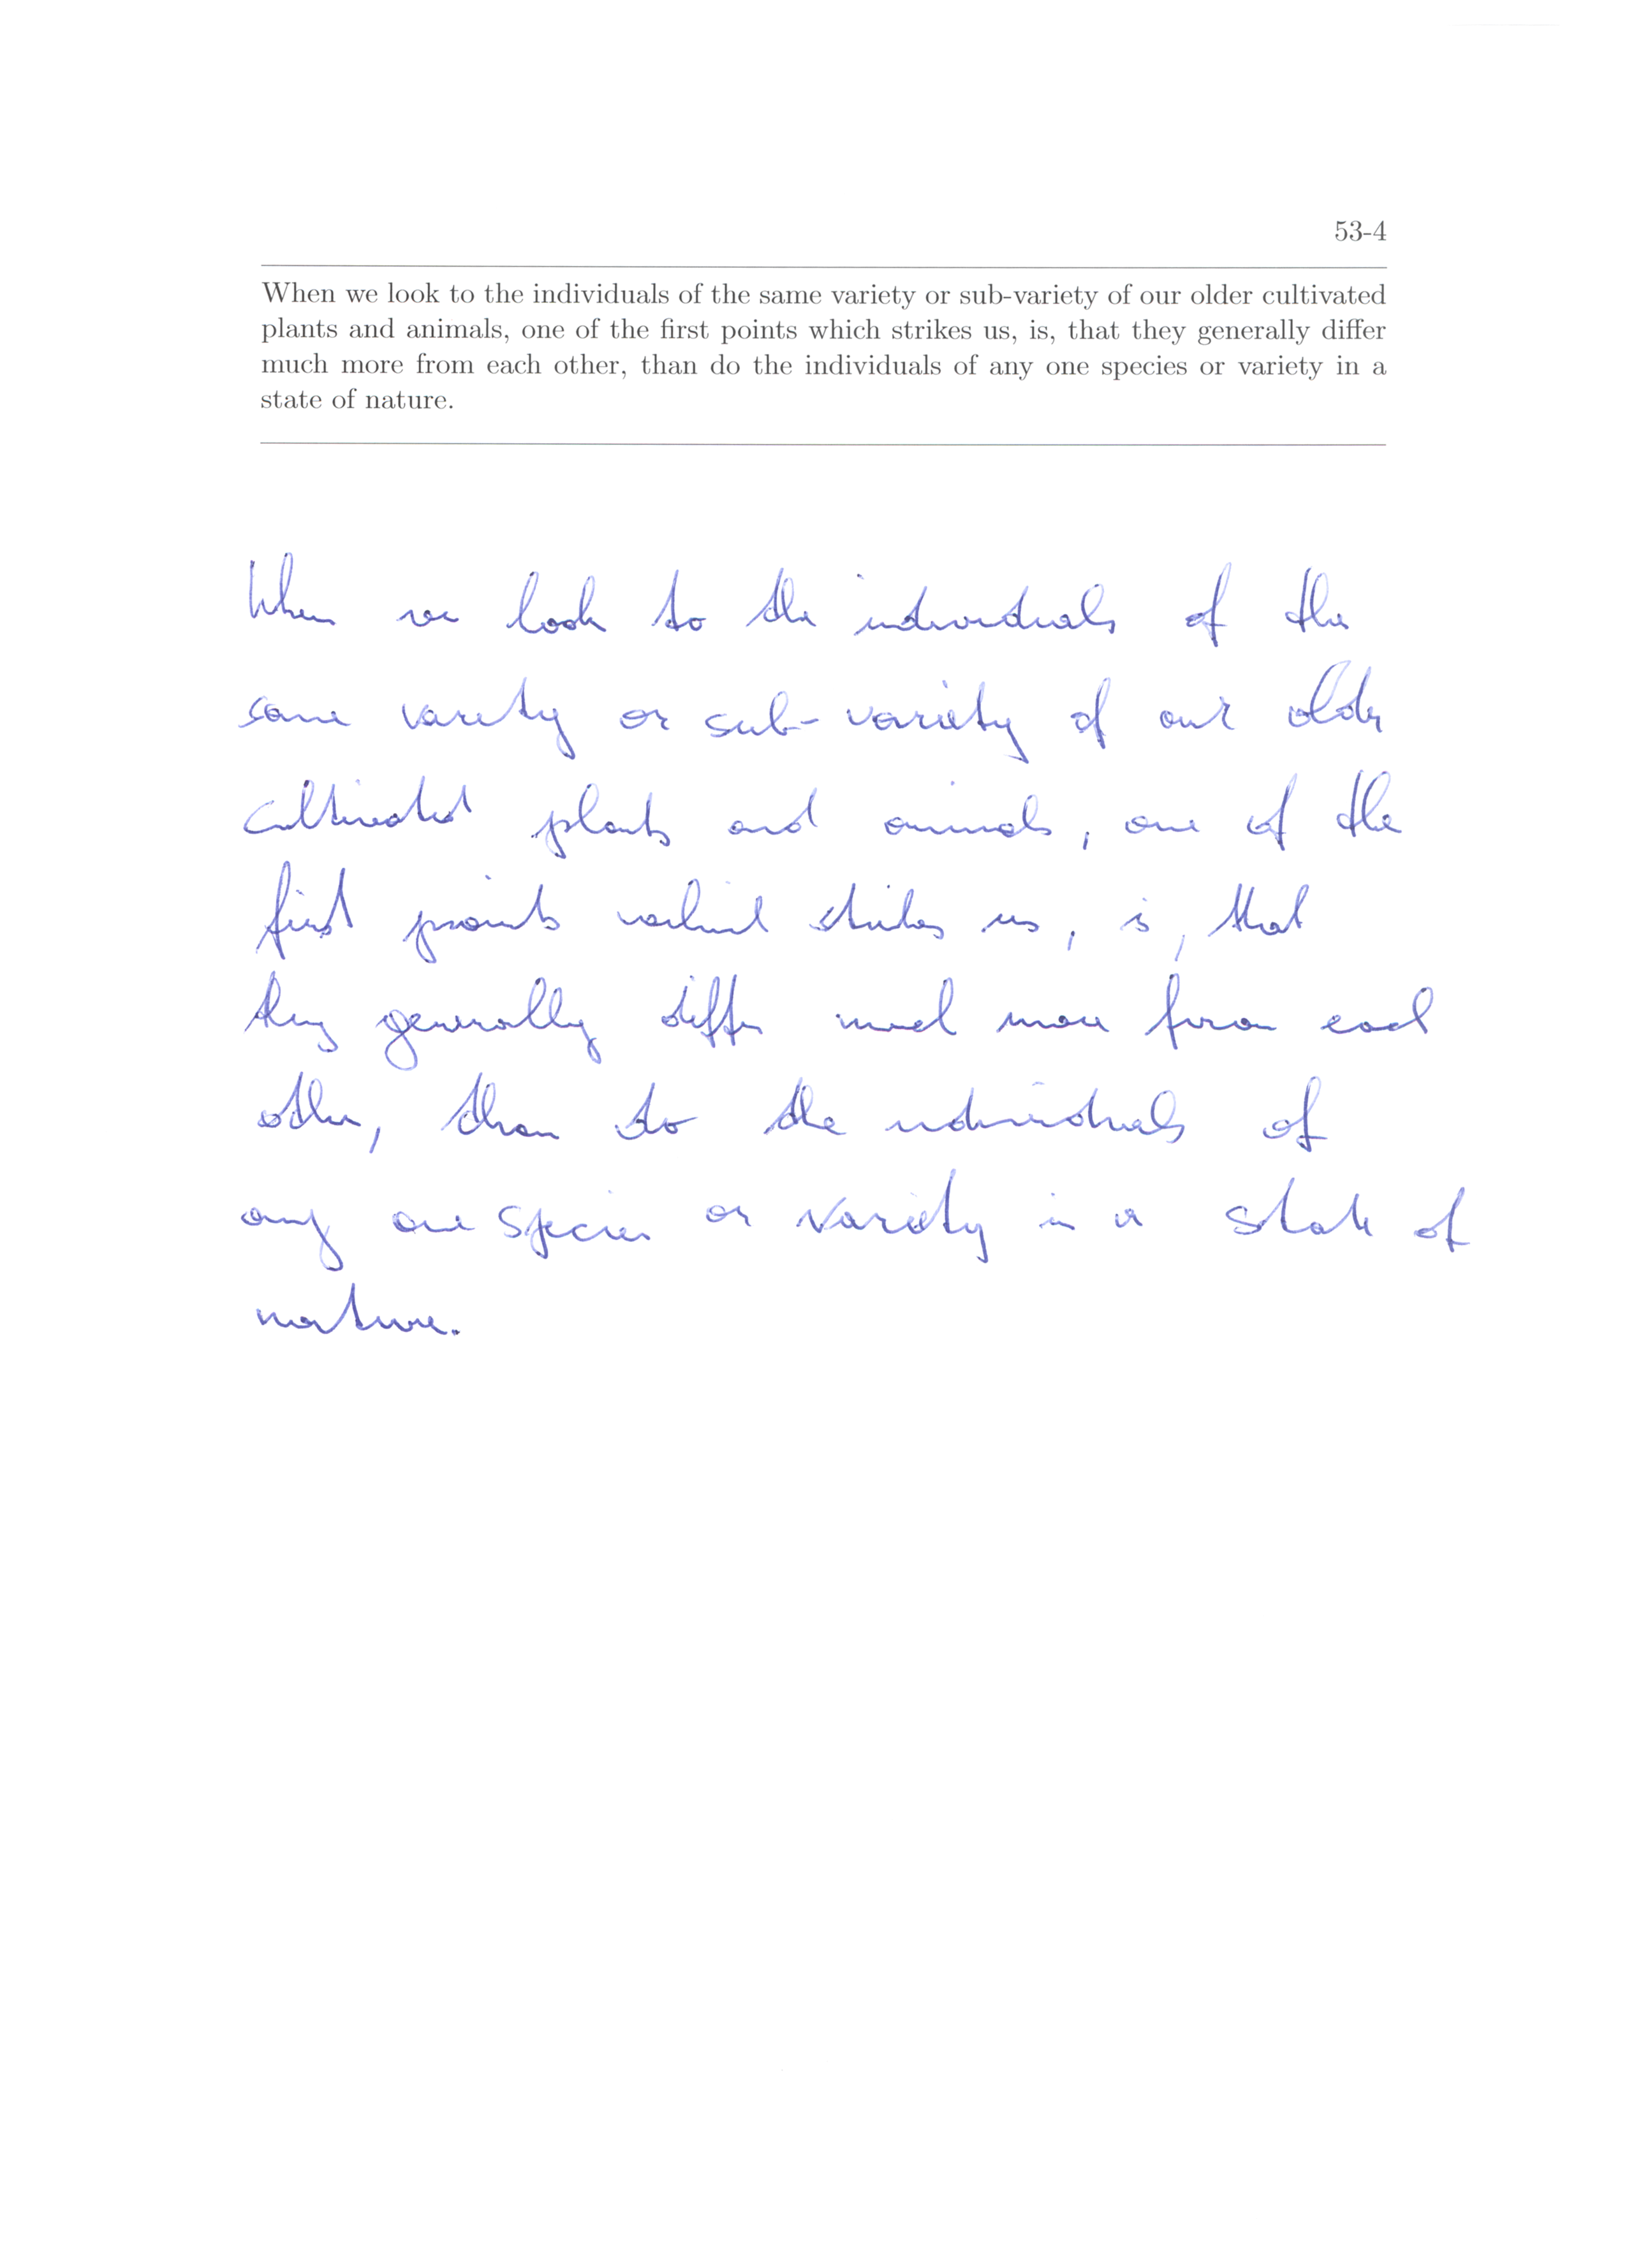 53-4
When we look to the individuals of the same variety or sub-variety of our older cultivated
plants and animals, one of the first points which strikes us, is, that they generally differ
much more from each other, than do the individuals of any one species or variety in a
state of nature.
When we look to the individuals of the
same variety or sub-variety of our older
cultivated plants and animals, one of the
first points which strikes us, is, that
they generally differ much more from each
other, than do the individuals of
any one species or variety in a state of
nature.